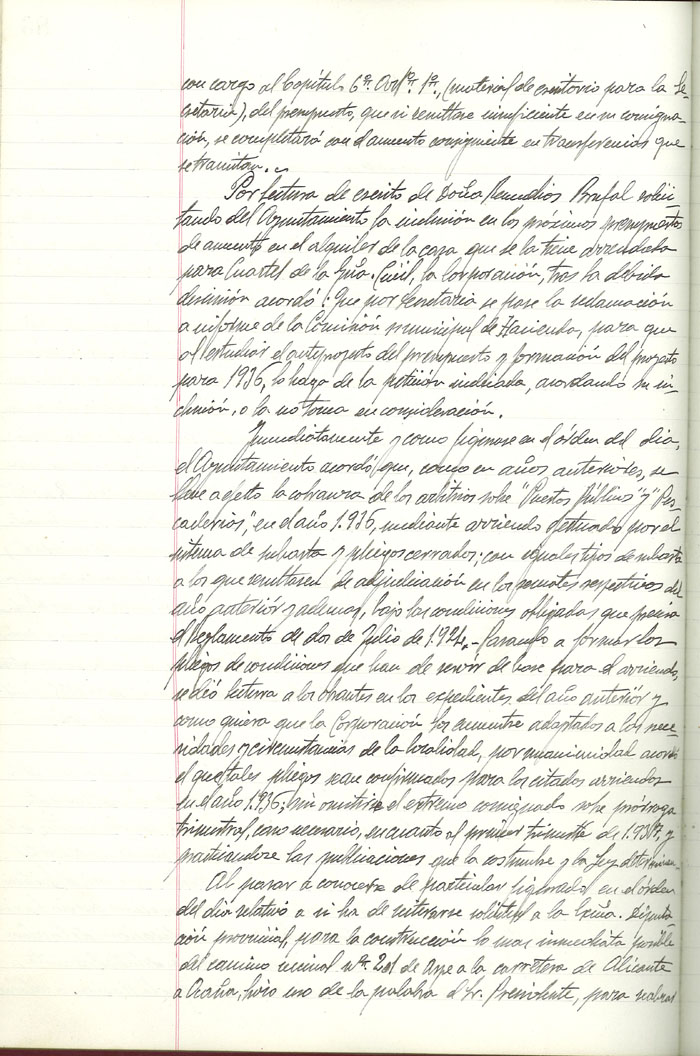 con cargo al Capítulo 6º. Artº. 1º, (material de escritorio para la Se-
cretaría), del presupuesto, que si resultase insuficiente en su consigna-
ción, se completará con el aumento consiguiente en transferencias que
se tramitan.
Por lectura de escrito de Doña Remedios Brufal solici-
tando del Ayuntamiento la inclusión en los próximos presupuestos
de aumento en el alquiler de la casa que se la tiene arrendada
para Cuartel de la Gda. Civil, la Corporación, tras la debida
discusión acordó: Que por Secretaría se pase la reclamación
a informe de la Comisión municipal de Hacienda, para que
al estudiar el anteproyecto del presupuesto y formación del proyecto
para 1936, lo haga de la petición indicada, acordando su in-
clusión, o la no toma en consideración.
Inmediatamente y como figurase en el órden del dia,
el Ayuntamiento acordó que, como en años anteriores, se
lleve a efecto la cobranza de los arbitrios sobre "Puestos Públicos" y "Pes-
caderias", en el año 1.936, mediante arriendo efectuado por el
sistema de subasta y pliegos cerrados; con iguales tipos de subasta
a los que resultasen de adjudicación en los remates respectivos del
año anterior y ademas, bajo las condiciones obligadas que precisa
el Reglamento de dos de Julio de 1.924. Pasando a formar los
pliegos de condiciones que han de servir de base para el arriendo,
se dió lectura a los obrantes en los expedientes del año anterior y
como quiera que la Corporación los encuentre adaptados a las nece-
sidades y circunstancias de la localidad, por unanimidad acordó
el que tales pliegos sean confirmados para los citados arriendos
en el año 1.936; sin omitirse el extremo consignado sobre prórroga
trimestral, caso necesario, en cuanto al primer trimestre de 1.937, y
practicandose las publicaciones que la costumbre y la Ley determinan.
Al pasar a conocerse de particular figurado en el órden
del dia relativo a si ha de interarse solicitud a la Excma. Diputa-
ción provincial, para la construcción lo mas inmediata posible
del camino vecinal nº. 201 de Aspe a la carretera de Alicante
a Ocaña, hizo uso de la palabra el Sr. Presidente, para